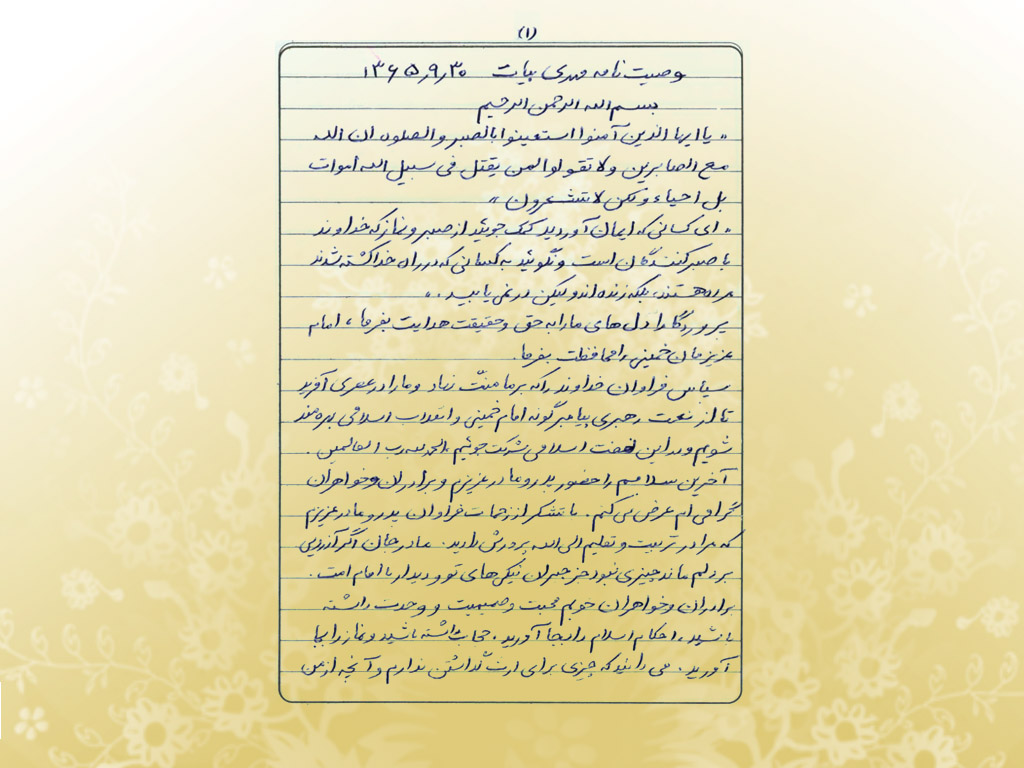 (۱)
وصیت نامه مهدی بیات ۱۳۶۵٫۹٫۳۰
بسم الله الرحمن الرحیم
« یا ایها الذین آمنوا استعینوا بالصبر والصلوه ان الله
مع الصابرین ولا تقولوا لمن یقتل فی سبیل الله اموات
بل احیاء و لکن لا تشعرون »
« ای کسانی که ایمان آوردید کمک جوئید از صبر و نماز که خداوند
با صبر کنندگان است و نگوئید به کسانی که در راه خدا کشته شدند
مرده هستند، بلکه زنده اند و لیکن در نمی یابید . »
پروردگارا دل های ما را به حق و حقیقت هدایت بفرما ، امام
عزیزمان خمینی را محافظت بفرما .
سپاس فراوان خداوند را که بر ما منّت نهاد و ما را در عصری آفرید
تا از نعمت رهبری پیامبر گونه امام خمینی و انقلاب اسلامی بهره مند
شویم و در این نهضت اسلامی شرکت جوئیم . الحمد لله رب العالمین .
آخرین سلامم را حضور پدر و مادر عزیزم و برادران و خواهران
گرامی ام عرض می کنم . با تشکر از زحمات فراوان پدر و مادر عزیزم
که مرا در تربیت و تعلیم الی الله پرورش دادید . مادر جان اگر آرزویی
بر دلم ماند چیزی نبود جز جبران نیکی های تو و دیدار با امام امت .
برادران و خواهران خوبم محبت و صمیمیت و وحدت داشته
باشید ، احکام اسلام را بجا آورید . حجاب داشته باشید و نماز را بجا
آورید . می دانید که چیزی برای ارث گذاشتن ندارم و آنچه از من